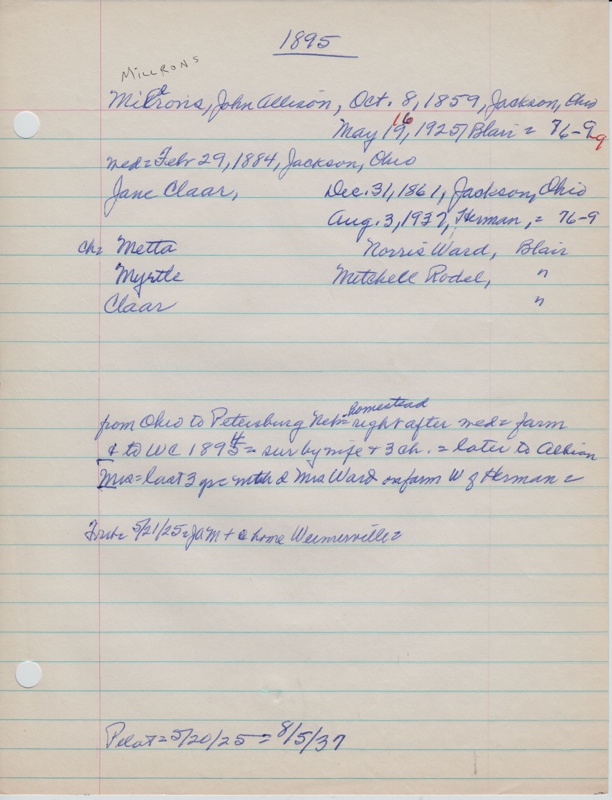 1895
MILLRONS
Miltrons, John Allison, Oct. 8, 1859, Jackson, Ohio
May 19, 16 1925, Blair = 76-9 9
wed = Febr 29, 1884, Jackson, Ohio
Jane Claar, Dec. 31, 1861, Jackson, Ohio
Aug. 3, 1937, Herman, = 76-9
ch= Metta Norris Ward, Blair
Myrtle Mitchell Rodel, "
Claar "
homestead
from Ohio to Petersburg Neb = right after wed = farm
& to WC 1895 4 = sur by wife + 3 ch. = later to Albion
Mrs = last 3 yrs with d Mrs Ward on farm W of Herman =
5/21/25 = JAM + home
Pilot = 5/20/25 = 8/5/37